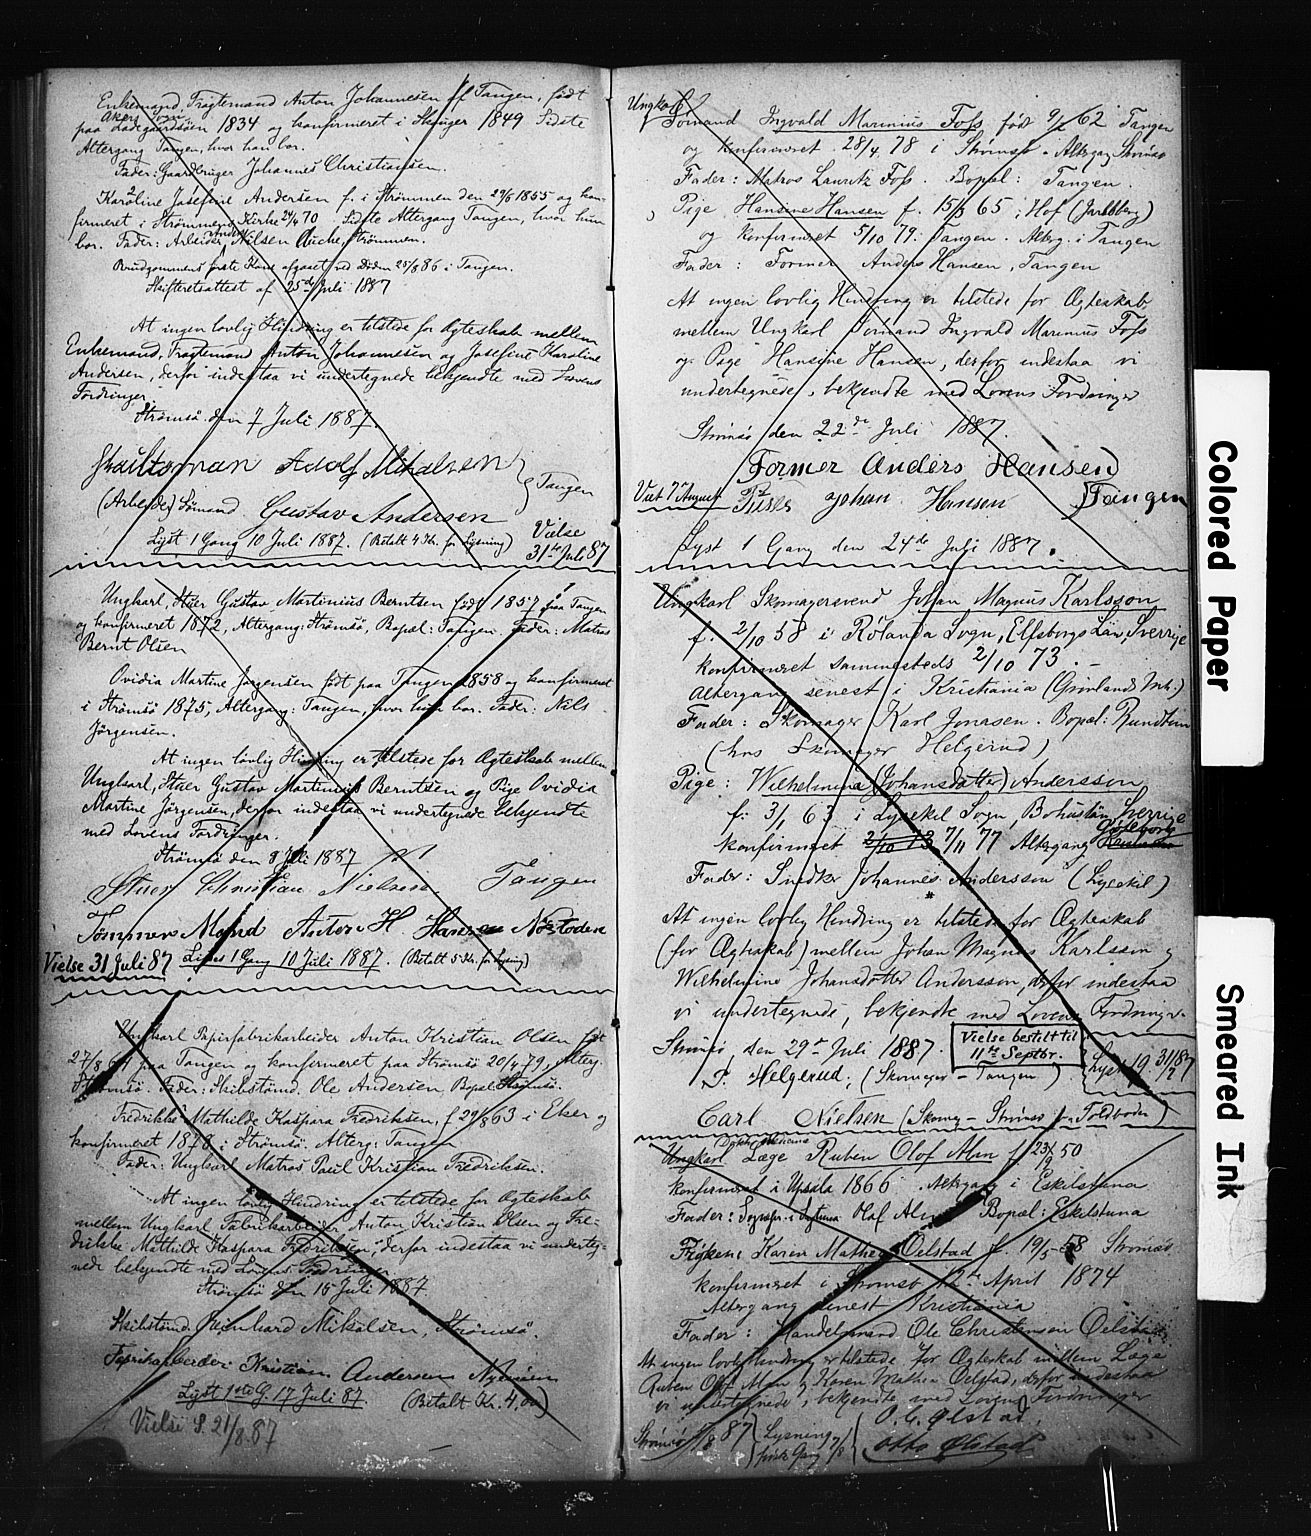 Enkemand, Fragtemand Anton Johannesen af Tangen, født
Akers Sogn
paa 1834 og konfirmeret i 1849 Sidste
Altergang Tangen, hvor han bor.
Fader: Gaardbruger Johannes Christiansen.
Karoline Josefine Andersen f. i Strømmen den 29/6 1855 og kon-
firmeret i Strømmens Kirke 24/4 70 Sidste Altergang Tangen, hvor hun
bor. Fader: Arbeider Nilsen Strømmen.
Brudgommens første Kone afgaaet ved Døden 25/8 86 i Tangen.
Skifteretsattest af 25de Juli 1887
At ingen lovlig Hindring er tilstede for Ægteskab mellem
Enkemand, Fragtemand Anton Johannesen og Josefine Karoline
Andersen, derfor indestaa vi undertegnede bekjendte med Lovens
Fordringer.
Strømsø den 7 Juli 1887.
Adolf Mikalsen
Tangen
(Arbeider) Sømand Gustav Andersen
Lyst 1 Gang 10 Juli 1887. (Betalt 4 Kr. for Lysning)
Vielse
31te Juli 87
Ungkarl, Stuer Gustav Martinius Berntsen født 1857 paa Tangen
og konfirmeret 1872, Altergang: Strømsø, Bopæl: Tangen. Fader: Matros
Bernt Olsen
Ovidia Martine Jørgensen født paa Tangen 1858 og konfirmeret
i Strømsø 1875, Altergang: Tangen, hvor hun bor. Fader: Nils
Jørgensen.
At ingen lovlig Hindring er tilstede for Ægteskab mellem
Ungkarl, Stuer Gustav Martinius Berntsen og Pige Ovidia
Martine Jørgensen, derfor indestaa vi undertegnede bekjendte
med Lovens Fordringer.
Strømsø den 8 Juli 1887
Stuer Christian Nielsen. Tangen
Tømmer Mand Anton H. Hansen
Vielse 31 Juli 87 Lyses 1 Gang 10 Juli 1887. (Betalt 5 Kr. for Lysning)
Ungkarl Papirfabrikarbeider Anton Kristian Olsen født
27/8 paa Tangen og konfirmeret paa Strømsø 20/4 79, Alterg.
Strømsø Fader: Skibstømd. Ole Andersen, Bopæl: Strømsø.
Fredrikke Mathilde Kaspara Fredriksen, f. 29/8 63 i Eker og
konfirmeret 1878 i Strømsø. Alterg: Tangen
Fader: Ungkarl Matros Paul Kristian Fredriksen.
At ingen lovlig Hindring er tilstede for Ægteskab
mellem Ungkarl Fabrikarbeider Anton Kristian Olsen og Fre-
drikke Mathilde Kaspara Fredriksen, derfor indestaa vi underteg-
nede bekjendte med Lovens Fordringer.
Strømsø den 15 Juli 1887
Skibstømd. Reinhard Mikalsen, Strømsø.
Fabrikarbeider Kristian Andersen
Lyst 1ste G. 17 Juli 87 (Betalt Kr. 4,00)
Vielse S. 21/8.87
Ungkarl
Sømand Ingvald Marinius Foss født 62 Tangen
og konfirmeret 28/4 78 i Strømsø - Altergang Strømsø
Fader: Matros Lauritz Foss. Bopæl: Tangen
Pige Hansine Hansen f. 15/3 65 i Hof (Jarlsberg)
og konfirmeret 5/10 79 i Tangen. Alterg. i Tangen
Fader: Former Anders Hansen, Tangen
At ingen lovlig Hindring er tilstede for Ægteskab
mellem Ungkarl Sømand Ingvald Marinius Foss
og Pige Hansine Hansen, derfor indestaa vi
undertegnede, bekjendte med Lovens Fordringer
Strømsø den 22de Juli 1887.
Former Anders Hansen
Viet 7 August Johan Hansen } Tangen
Lyst 1 Gang den 24de Juli 1887.
Ungkarl Skomagersvend Johan Magnus Karlsson
f. 2/10 58 i Rölanda Sogn, Elfsborgs Län, Sverige
konfirmeret sammesteds 2/10 73. -
Altergang senest i Kristiania (Grønlands Mh.)
Fader: Skomager Karl Jonasen. Bopæl: Rundtom
(hos Skomager Helgerud)
Pige: Wilhelmina (Johansdotter) Andersson
f. 3/1 63 i Lysekil Sogn, Bohuslän, Sverige
Göteborg
konfirmeret 2/10 73 7/11 77 Altergang
Fader: Snedker Johannes Andersson (Lysekil)
At ingen lovlig Hindring er tilstede for Ægteskab
(for Ægteskab) mellem Johan Magnus Karlsson og
Wilhelmine Johansdotter Andersson, derfor indestaa
vi undertegnede, bekjendte med Lovens Fordringer.
Strømsø, den 29de Juli 1887.
Vielse bestilt til
11te Septbr.
Lyst 1 G 31/7 87
P. Helgerud, (Skomager - Tangen)
Carl Nielsen (Skomag - Strømsø Toldboden)
Doktor Medicinæ
Ungkarl Læge Ruben Olof Alm f. 23/9 50
konfirmeret i Upsala 1866. Altergang i Eskilstuna
Fader: Sognepr. i Olof Alm Bopæl: Eskilstuna
Frøken: Karen Mathea Oelstad f. 19/5 58 Strømsø
konfirmeret i Strømsø 12te April 1874
Altergang senest Kristiania
Fader: Handelsmand Ole Christensen Oelstad
At ingen lovlig Hindring er tilstede for Ægteskab mellem Læge
Ruben Olof Alm og Karen Mathea Oelstad, derfor indestaa
vi undertegnede, bekjendte med Lovens Fordringer
Strømsø 1/8 87 } Lysning
første Gang 7/8
O. C. Ølstad.
Otto Ølstad
Colored Paper
Smeared Ink